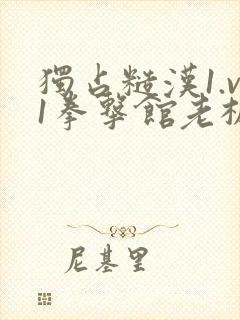 獨占糙漢1.v
1拳擊館老板
尼基里